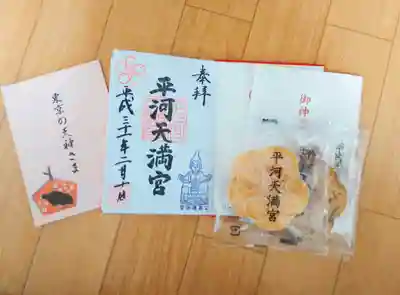 東京の天神さま
奉拝
平河天満宮
平成三十一年二月十日
御神
平河天満宮